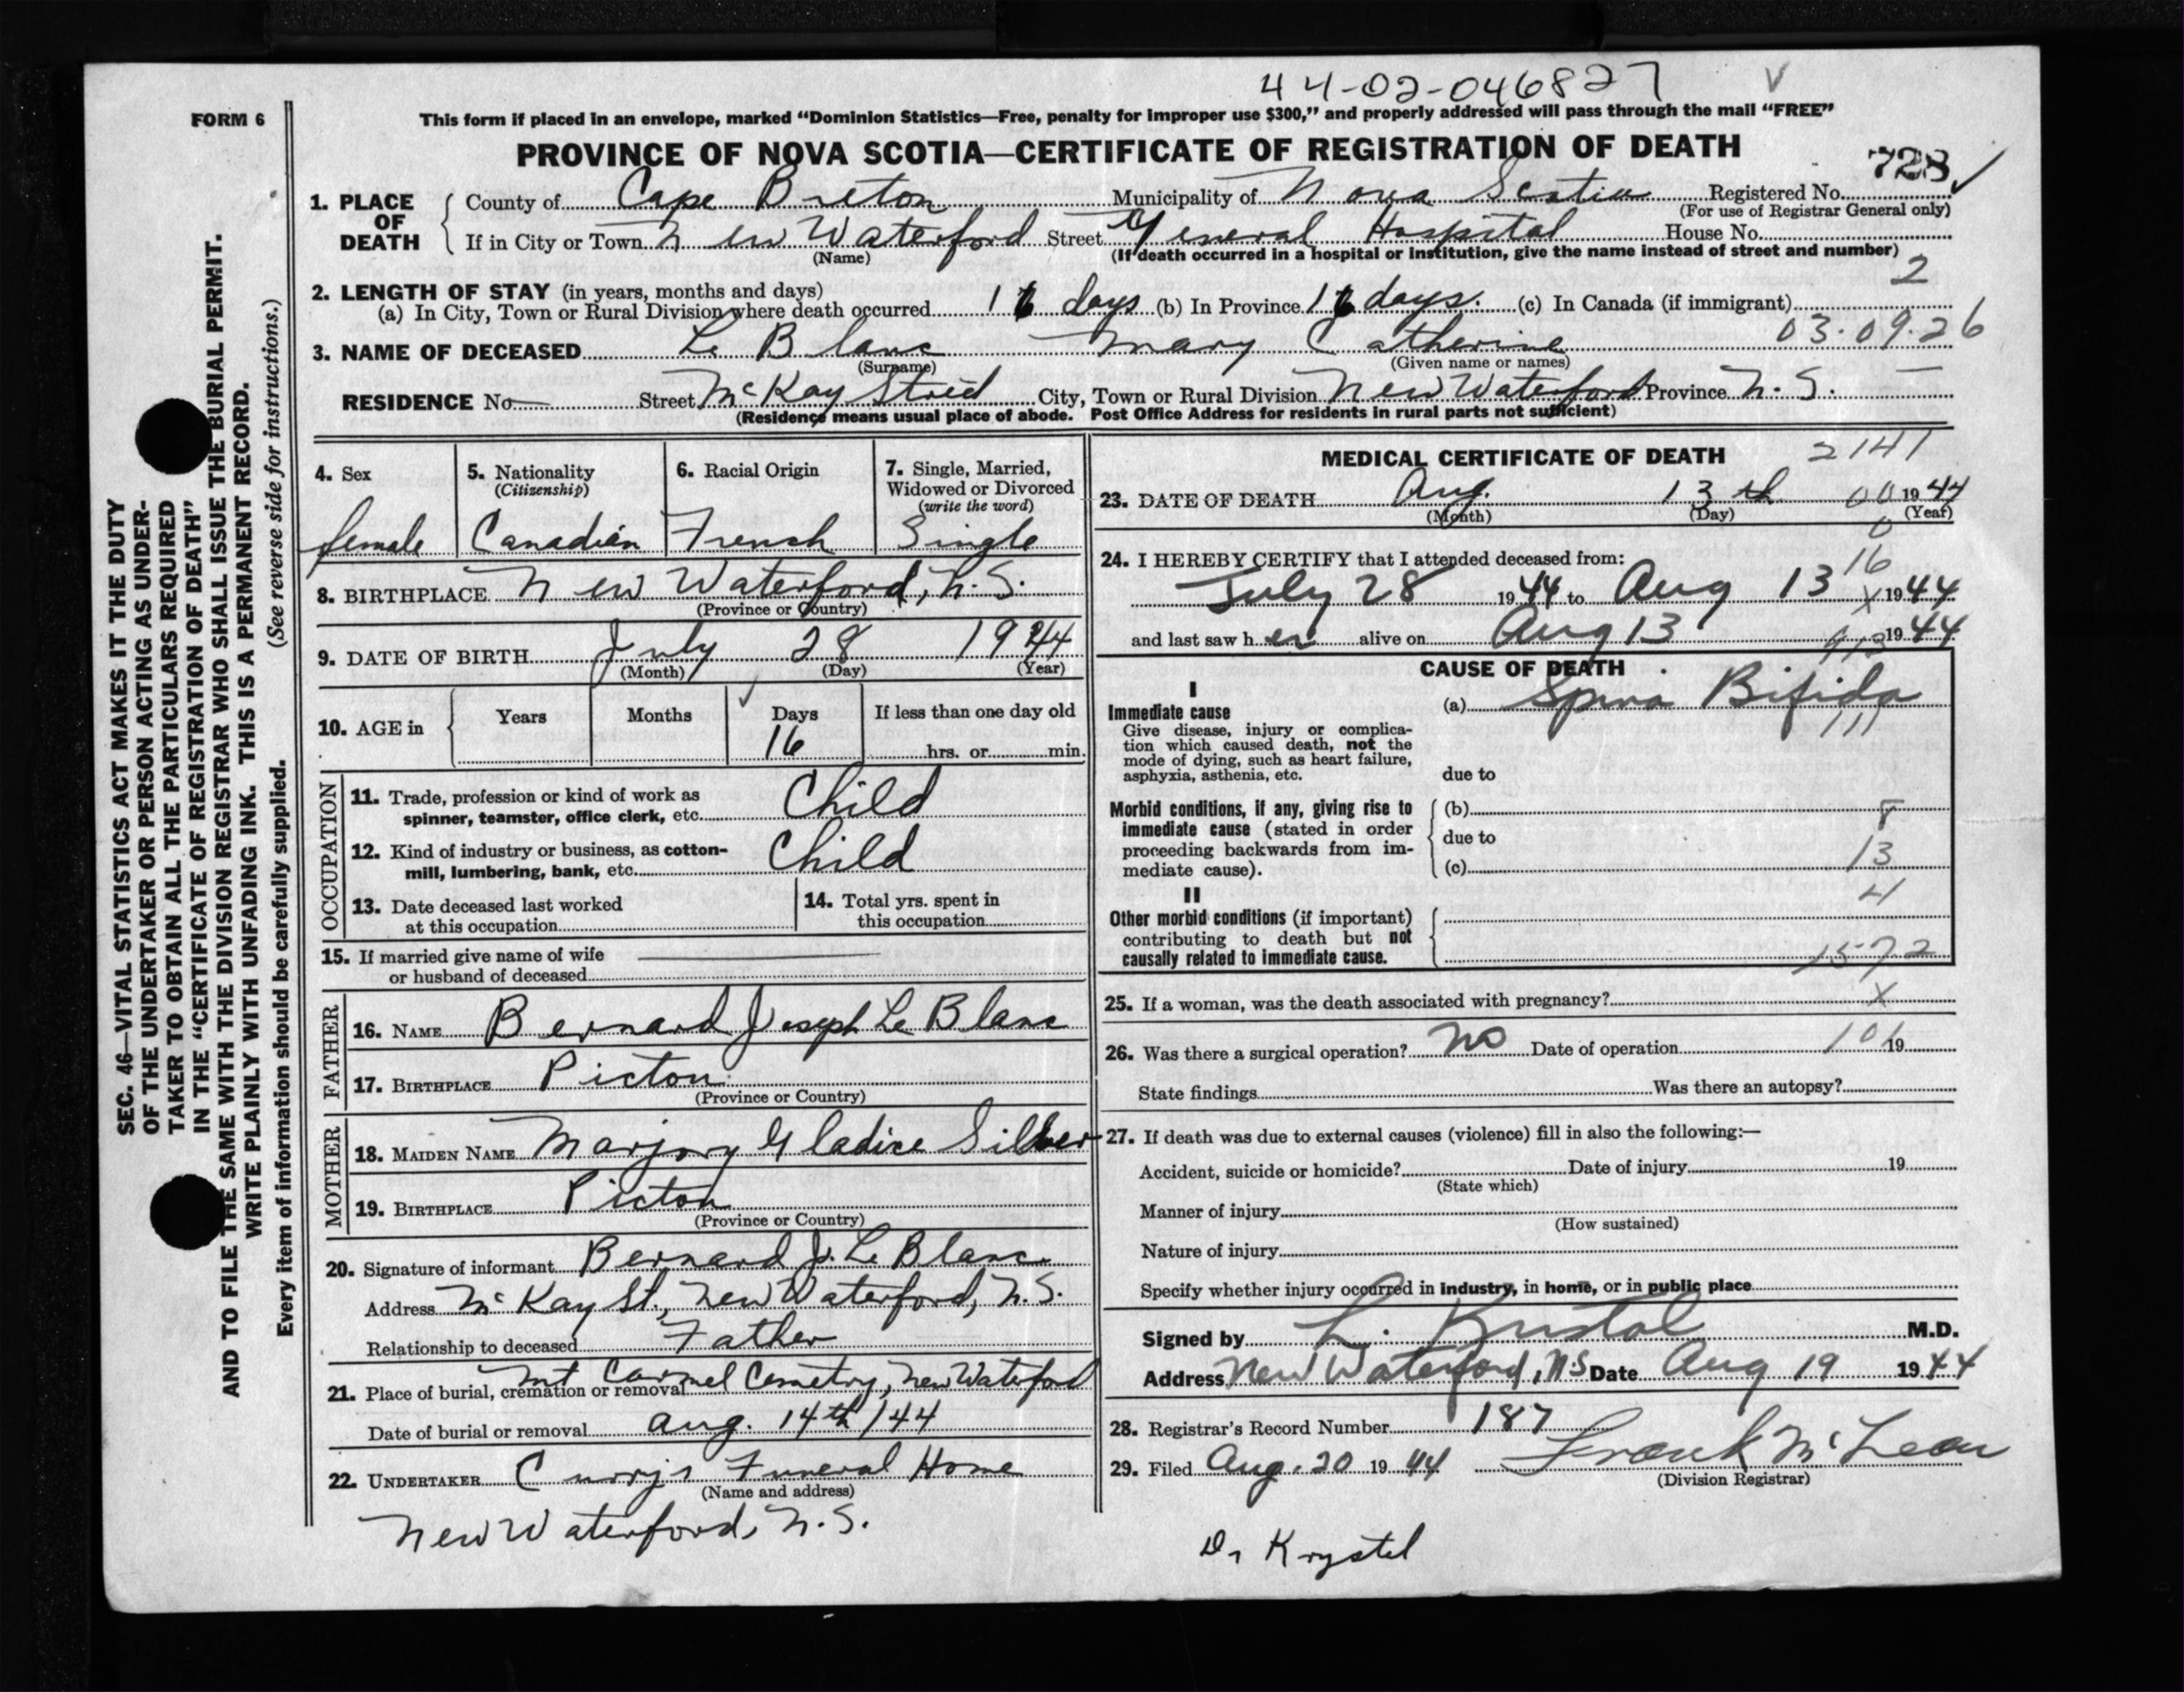 44-02-046827 V
FORM 6
This form if placed in an envelope, marked “Dominion Statistics—Free, penalty for improper use $300,” and properly addressed will pass through the mail “FREE”
PROVINCE OF NOVA SCOTIA—CERTIFICATE OF REGISTRATION OF DEATH
728
1. PLACE OF DEATH County of Cape Breton Municipality of Nova Scotia Registered No.
(For use of Registrar General only)
If in City or Town New Waterford Street General Hospital House No.
(Name) (If death occurred in a hospital or institution, give the name instead of street and number)
2
2. LENGTH OF STAY (in years, months and days)
(a) In City, Town or Rural Division where death occurred 16 days (b) In Province 16 days. (c) In Canada (if immigrant)
03.09.26
3. NAME OF DECEASED Le Blanc Mary Catherine
(Surname) (Given name or names)
RESIDENCE No. — Street McKay Street City, Town or Rural Division New Waterford Province N.S. —
(Residence means usual place of abode. Post Office Address for residents in rural parts not sufficient)
4. Sex 5. Nationality 6. Racial Origin 7. Single, Married,
(Citizenship) Widowed or Divorced
(write the word)
female Canadian French Single
8. BIRTHPLACE New Waterford, N.S.
(Province or Country)
9. DATE OF BIRTH July 28 1944
(Month) (Day) (Year)
10. AGE in Years Months Days If less than one day old
16 hrs. or min.
OCCUPATION
11. Trade, profession or kind of work as
spinner, teamster, office clerk, etc. Child
12. Kind of industry or business, as cotton-
mill, lumbering, bank, etc. Child
13. Date deceased last worked 14. Total yrs. spent in
at this occupation this occupation
15. If married give name of wife
or husband of deceased
FATHER
16. NAME Bernard Joseph Le Blanc
17. BIRTHPLACE Picton
(Province or Country)
MOTHER
18. MAIDEN NAME Marjory Gladice Silver
19. BIRTHPLACE Picton
(Province or Country)
20. Signature of informant Bernard J. Le Blanc
Address McKay St., New Waterford, N.S.
Relationship to deceased Father
21. Place of burial, cremation or removal Mt Carmel Cemetry, New Waterford
Date of burial or removal Aug. 14th/44
22. UNDERTAKER Curry's Funeral Home
(Name and address)
New Waterford, N.S.
MEDICAL CERTIFICATE OF DEATH 2141
23. DATE OF DEATH Aug. 13th 00 1944
(Month) (Day) (Year)
0
24. I HEREBY CERTIFY that I attended deceased from: 16
July 28 1944 to Aug 13 X 1944
and last saw her alive on Aug 13 1944
CAUSE OF DEATH
I
Immediate cause (a) Spina Bifida
Give disease, injury or complica-
tion which caused death, not the
mode of dying, such as heart failure,
asphyxia, asthenia, etc. due to
111
Morbid conditions, if any, giving rise to (b)
immediate cause (stated in order due to
proceeding backwards from im-
mediate cause). (c) 13
II
Other morbid conditions (if important)
contributing to death but not
causally related to immediate cause. 157.2
25. If a woman, was the death associated with pregnancy? X
26. Was there a surgical operation? No Date of operation 101 19
State findings Was there an autopsy?
27. If death was due to external causes (violence) fill in also the following:—
Accident, suicide or homicide? Date of injury 19
(State which)
Manner of injury
(How sustained)
Nature of injury
Specify whether injury occurred in industry, in home, or in public place
Signed by L. Kristal M.D.
Address New Waterford, N.S Date Aug 19 1944
28. Registrar's Record Number 187
29. Filed Aug. 20 1944 Frank McLean
(Division Registrar)
Dr Krystel
SEC. 46—VITAL STATISTICS ACT MAKES IT THE DUTY
OF THE UNDERTAKER OR PERSON ACTING AS UNDER-
TAKER TO OBTAIN ALL THE PARTICULARS REQUIRED
IN THE “CERTIFICATE OF REGISTRATION OF DEATH”
AND TO FILE THE SAME WITH THE DIVISION REGISTRAR WHO SHALL ISSUE THE BURIAL PERMIT.
WRITE PLAINLY WITH UNFADING INK. THIS IS A PERMANENT RECORD.
Every item of information should be carefully supplied. (See reverse side for instructions.)